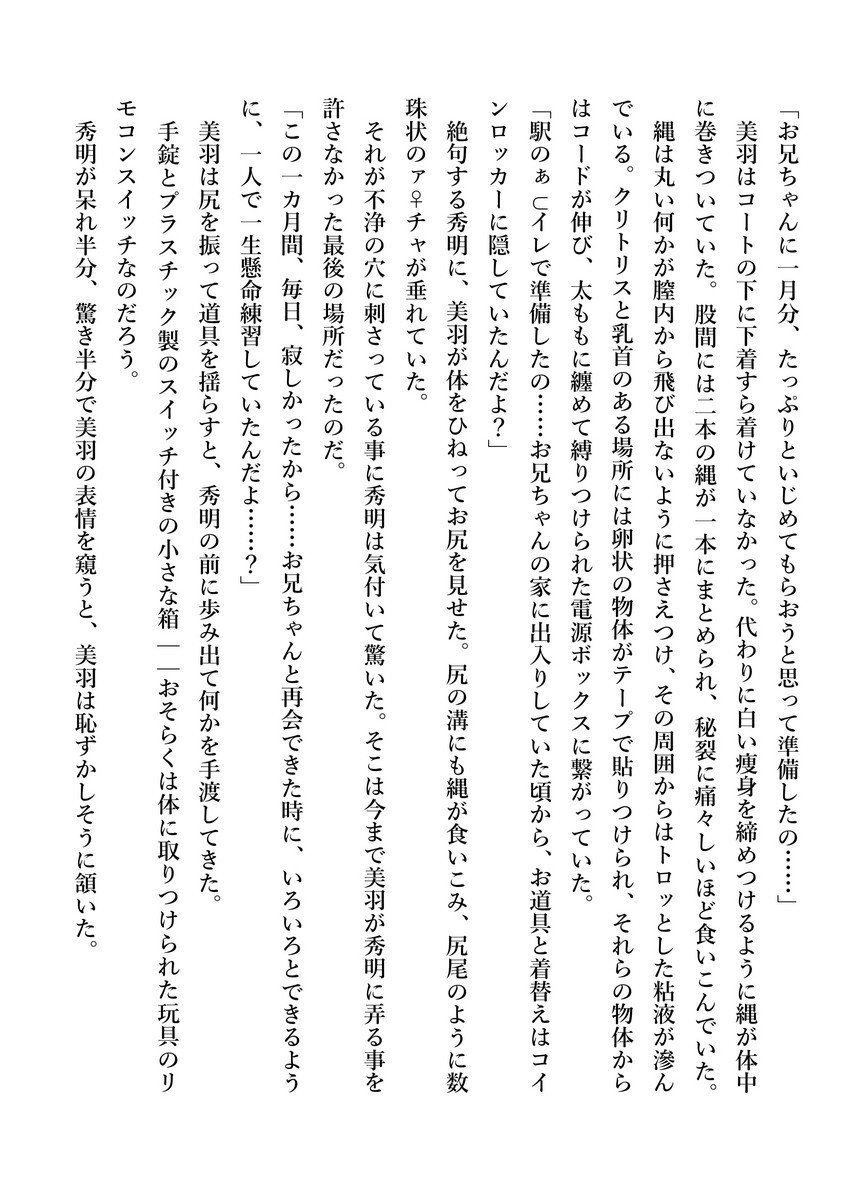 「お兄ちゃんに一月分、たっぷりといじめてもらおうと思って準備したの……」
美羽はコートの下に下着すら着けていなかった。代わりに白い痩身を締めつけるように縄が体中
に巻きついていた。股間には二本の縄が一本にまとめられ、秘裂に痛々しいほど食いこんでいた。
縄は丸い何かが膣内から飛び出ないように押さえつけ、その周囲からはトロッとした粘液が滲ん
でいる。クリトリスと乳首のある場所には卵状の物体がテープで貼りつけられ、それらの物体から
はコードが伸び、太ももに纏めて縛りつけられた電源ボックスに繋がっていた。
「駅のぉ⊂イレで準備したの……お兄ちゃんの家に出入りしていた頃から、お道具と着替えはコイ
ンロッカーに隠していたんだよ？」
絶句する秀明に、美羽が体をひねってお尻を見せた。尻の溝にも縄が食いこみ、尻尾のように数
珠状のァ♀チャが垂れていた。
それが不浄の穴に刺さっている事に秀明は気付いて驚いた。そこは今まで美羽が秀明に弄る事を
許さなかった最後の場所だったのだ。
「この一カ月間、毎日、寂しかったから……お兄ちゃんと再会できた時に、いろいろとできるよう
に、一人で一生懸命練習していたんだよ……？」
美羽は尻を振って道具を揺らすと、秀明の前に歩み出て何かを手渡してきた。
手錠とプラスチック製のスイッチ付きの小さな箱――おそらくは体に取りつけられた玩具のリ
モコンスイッチなのだろう。
秀明が呆れ半分、驚き半分で美羽の表情を窺うと、美羽は恥ずかしそうに頷いた。